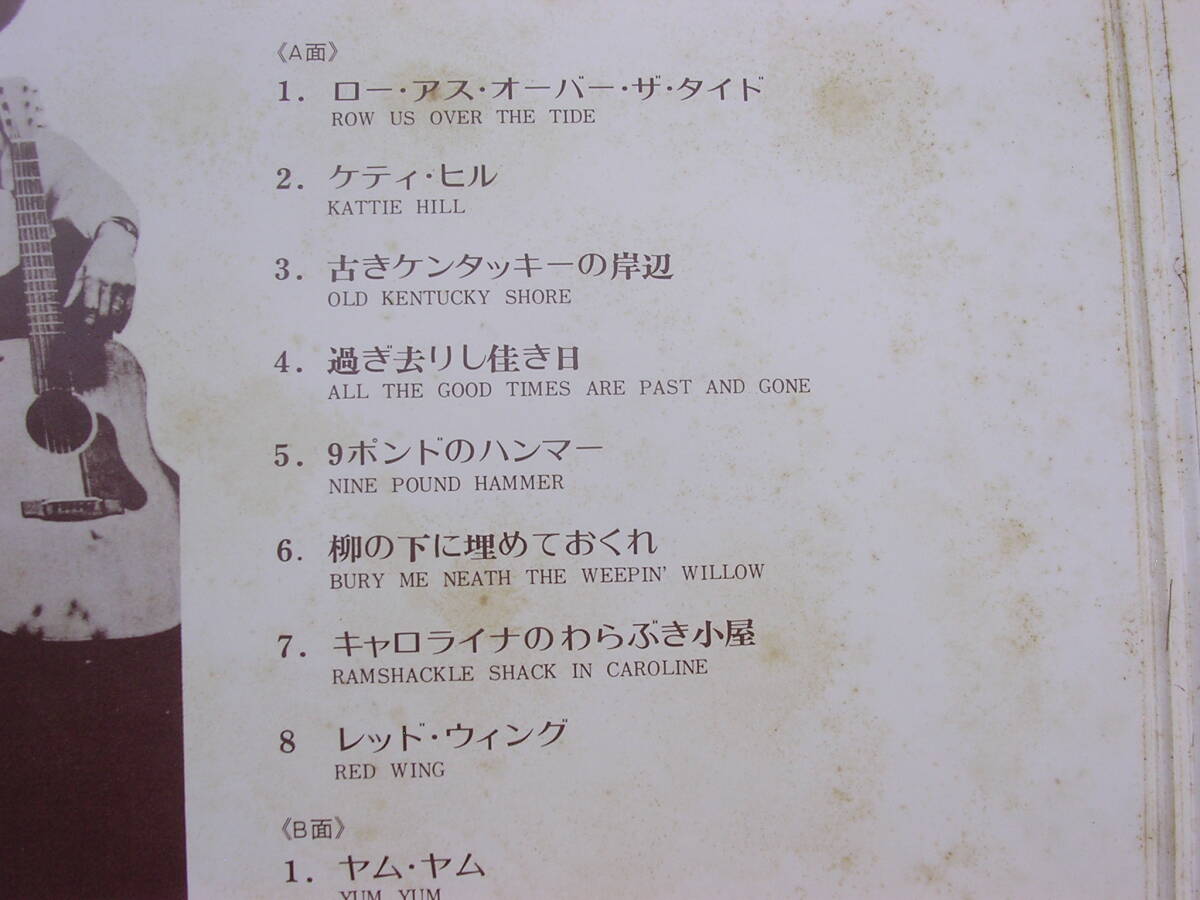 《A面》
1. ロー・アス・オーバー・ザ・タイド
ROW US OVER THE TIDE
2. ケティ・ヒル
KATTIE HILL
3. 古きケンタッキーの岸辺
OLD KENTUCKY SHORE
4. 過ぎ去りし佳き日
ALL THE GOOD TIMES ARE PAST AND GONE
5. 9ポンドのハンマー
NINE POUND HAMMER
6. 柳の下に埋めておくれ
BURY ME NEATH THE WEEPIN' WILLOW
7. キャロライナのわらぶき小屋
RAMSHACKLE SHACK IN CAROLINE
8 レッド・ウィング
RED WING
《B面》
1. ヤム・ヤム
YUM YUM